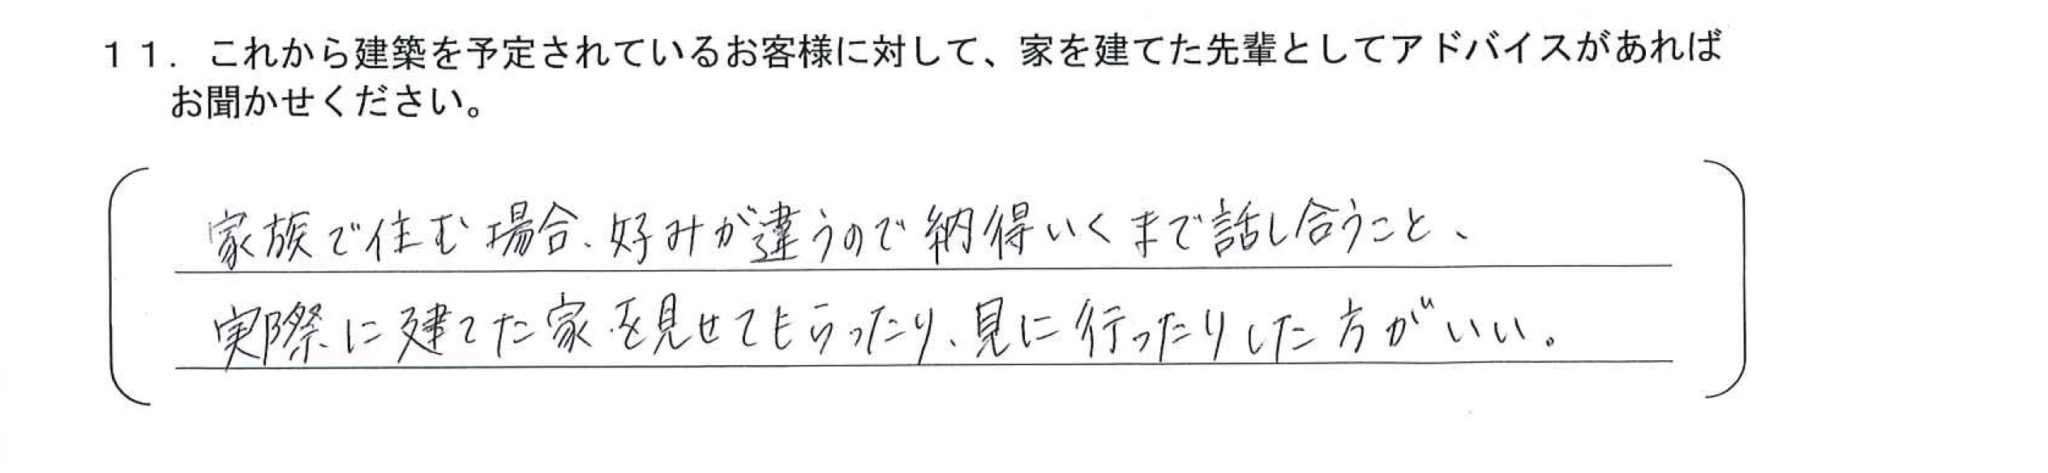 １１．これから建築を予定されているお客様に対して、家を建てた先輩としてアドバイスがあれば
お聞かせください。
家族で住む場合、好みが違うので納得いくまで話し合うこと、
実際に建てた家を見せてもらったり、見に行ったりした方がいい。